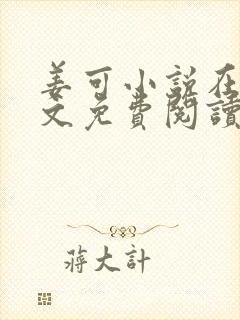 姜可小说在
文免費閱讀
蔣大計